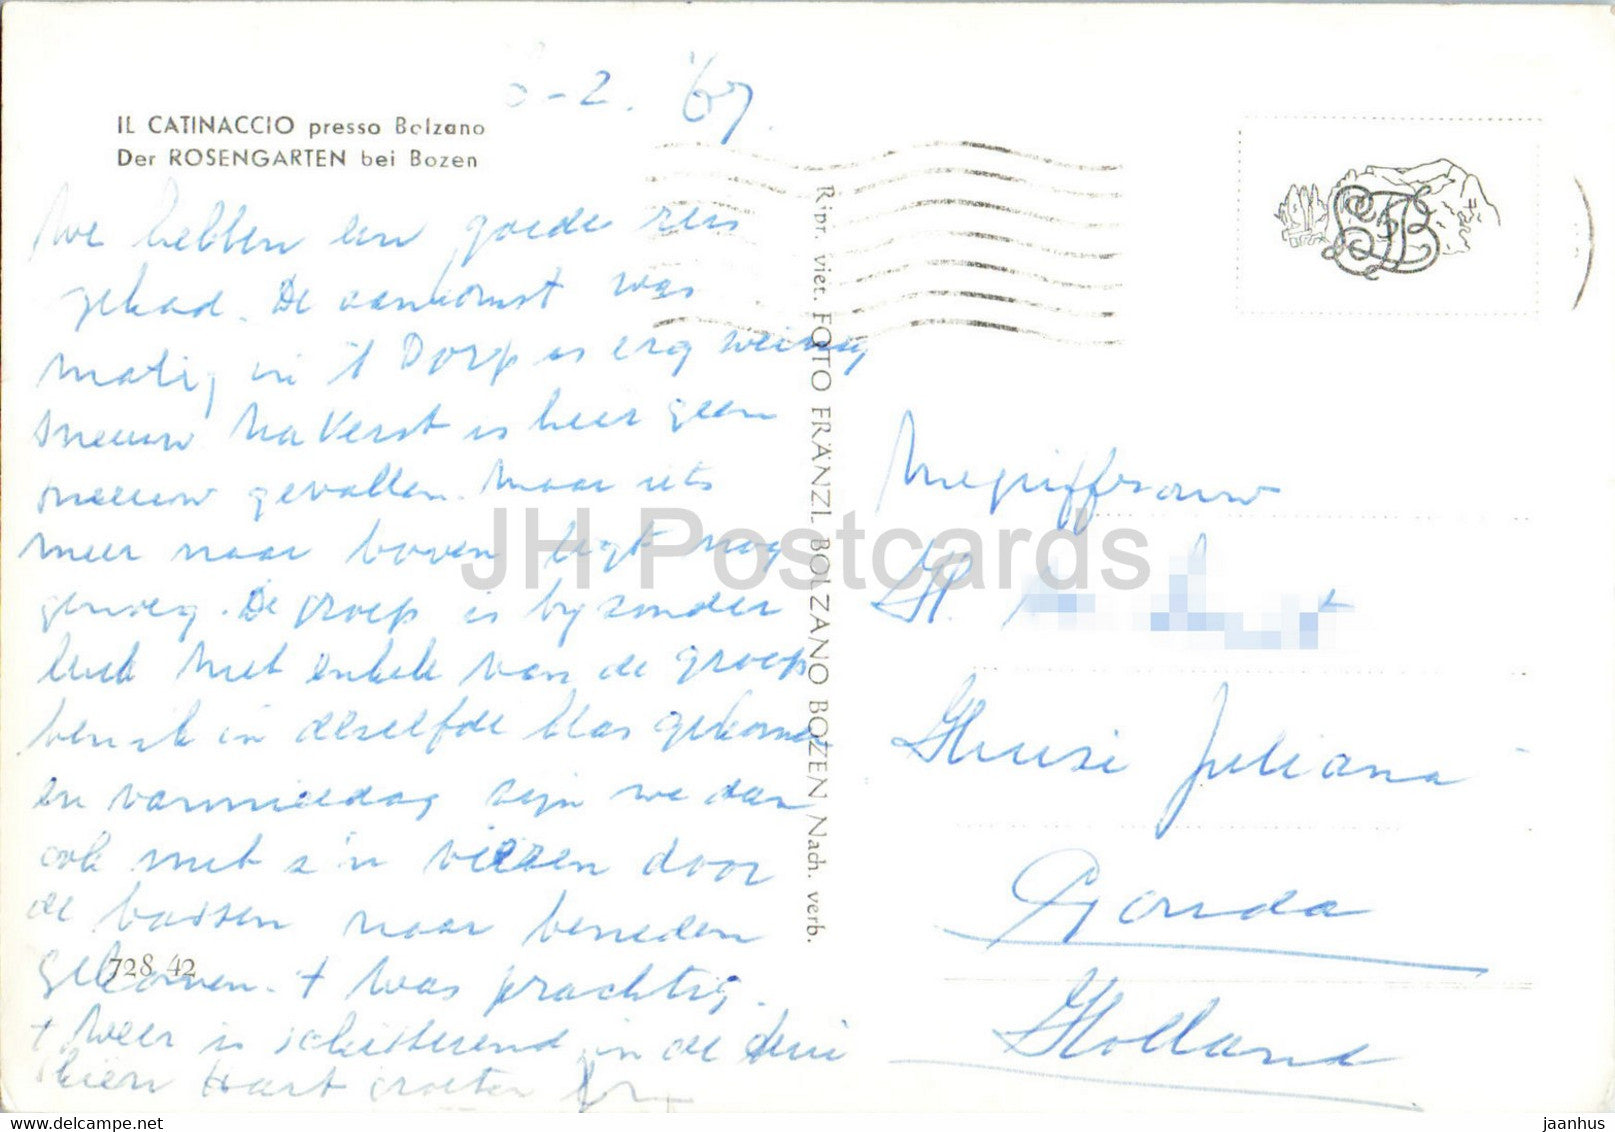 -2. '67.
IL CATINACCIO presso Bolzano
Der ROSENGARTEN bei Bozen
We hebben een goede reis
gehad. De aankomst was
matig, in 't Dorp is erg weinig
sneeuw Na Kerst is hier geen
sneeuw gevallen. Maar iets
meer naar boven ligt nog
genoeg. De groep is byzonder
leuk Met enkele van de groep
ben ik in dezelfde klas gekomen
en vanmiddag zijn we dan
ook met z'n vieren door
de bossen naar beneden
gekomen. t was prachtig.
t Weer is schitterend in de
Hart groeten
728 42
Ripr. viet. FOTO FRÄNZL BOLZANO BOZEN Nach. verb.
Mejuffrouw
H.
Huize Juliana
Gouda
Holland
JH Postcards
www.delcampe.net
jaanhus